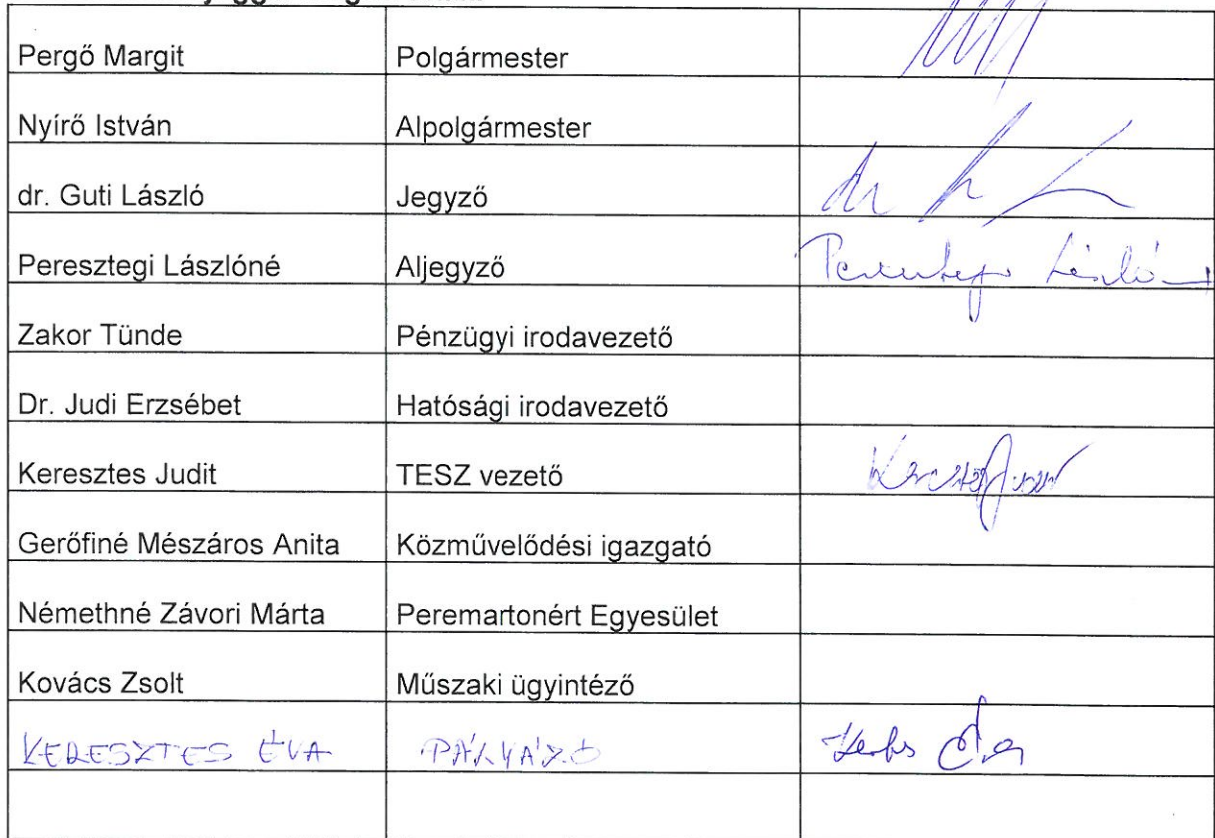 Pergő Margit Polgármester
Nyírő István Alpolgármester
dr. Guti László Jegyző dr
Peresztegi Lászlóné Aljegyző
Zakor Tünde Pénzügyi irodavezető
Dr. Judi Erzsébet Hatósági irodavezető
Keresztes Judit TESZ vezető
Gerőfiné Mészáros Anita Közművelődési igazgató
Némethné Závori Márta Peremartonért Egyesület
Kovács Zsolt Műszaki ügyintéző
KERESZTES ÉVA PÁLYÁZÓ